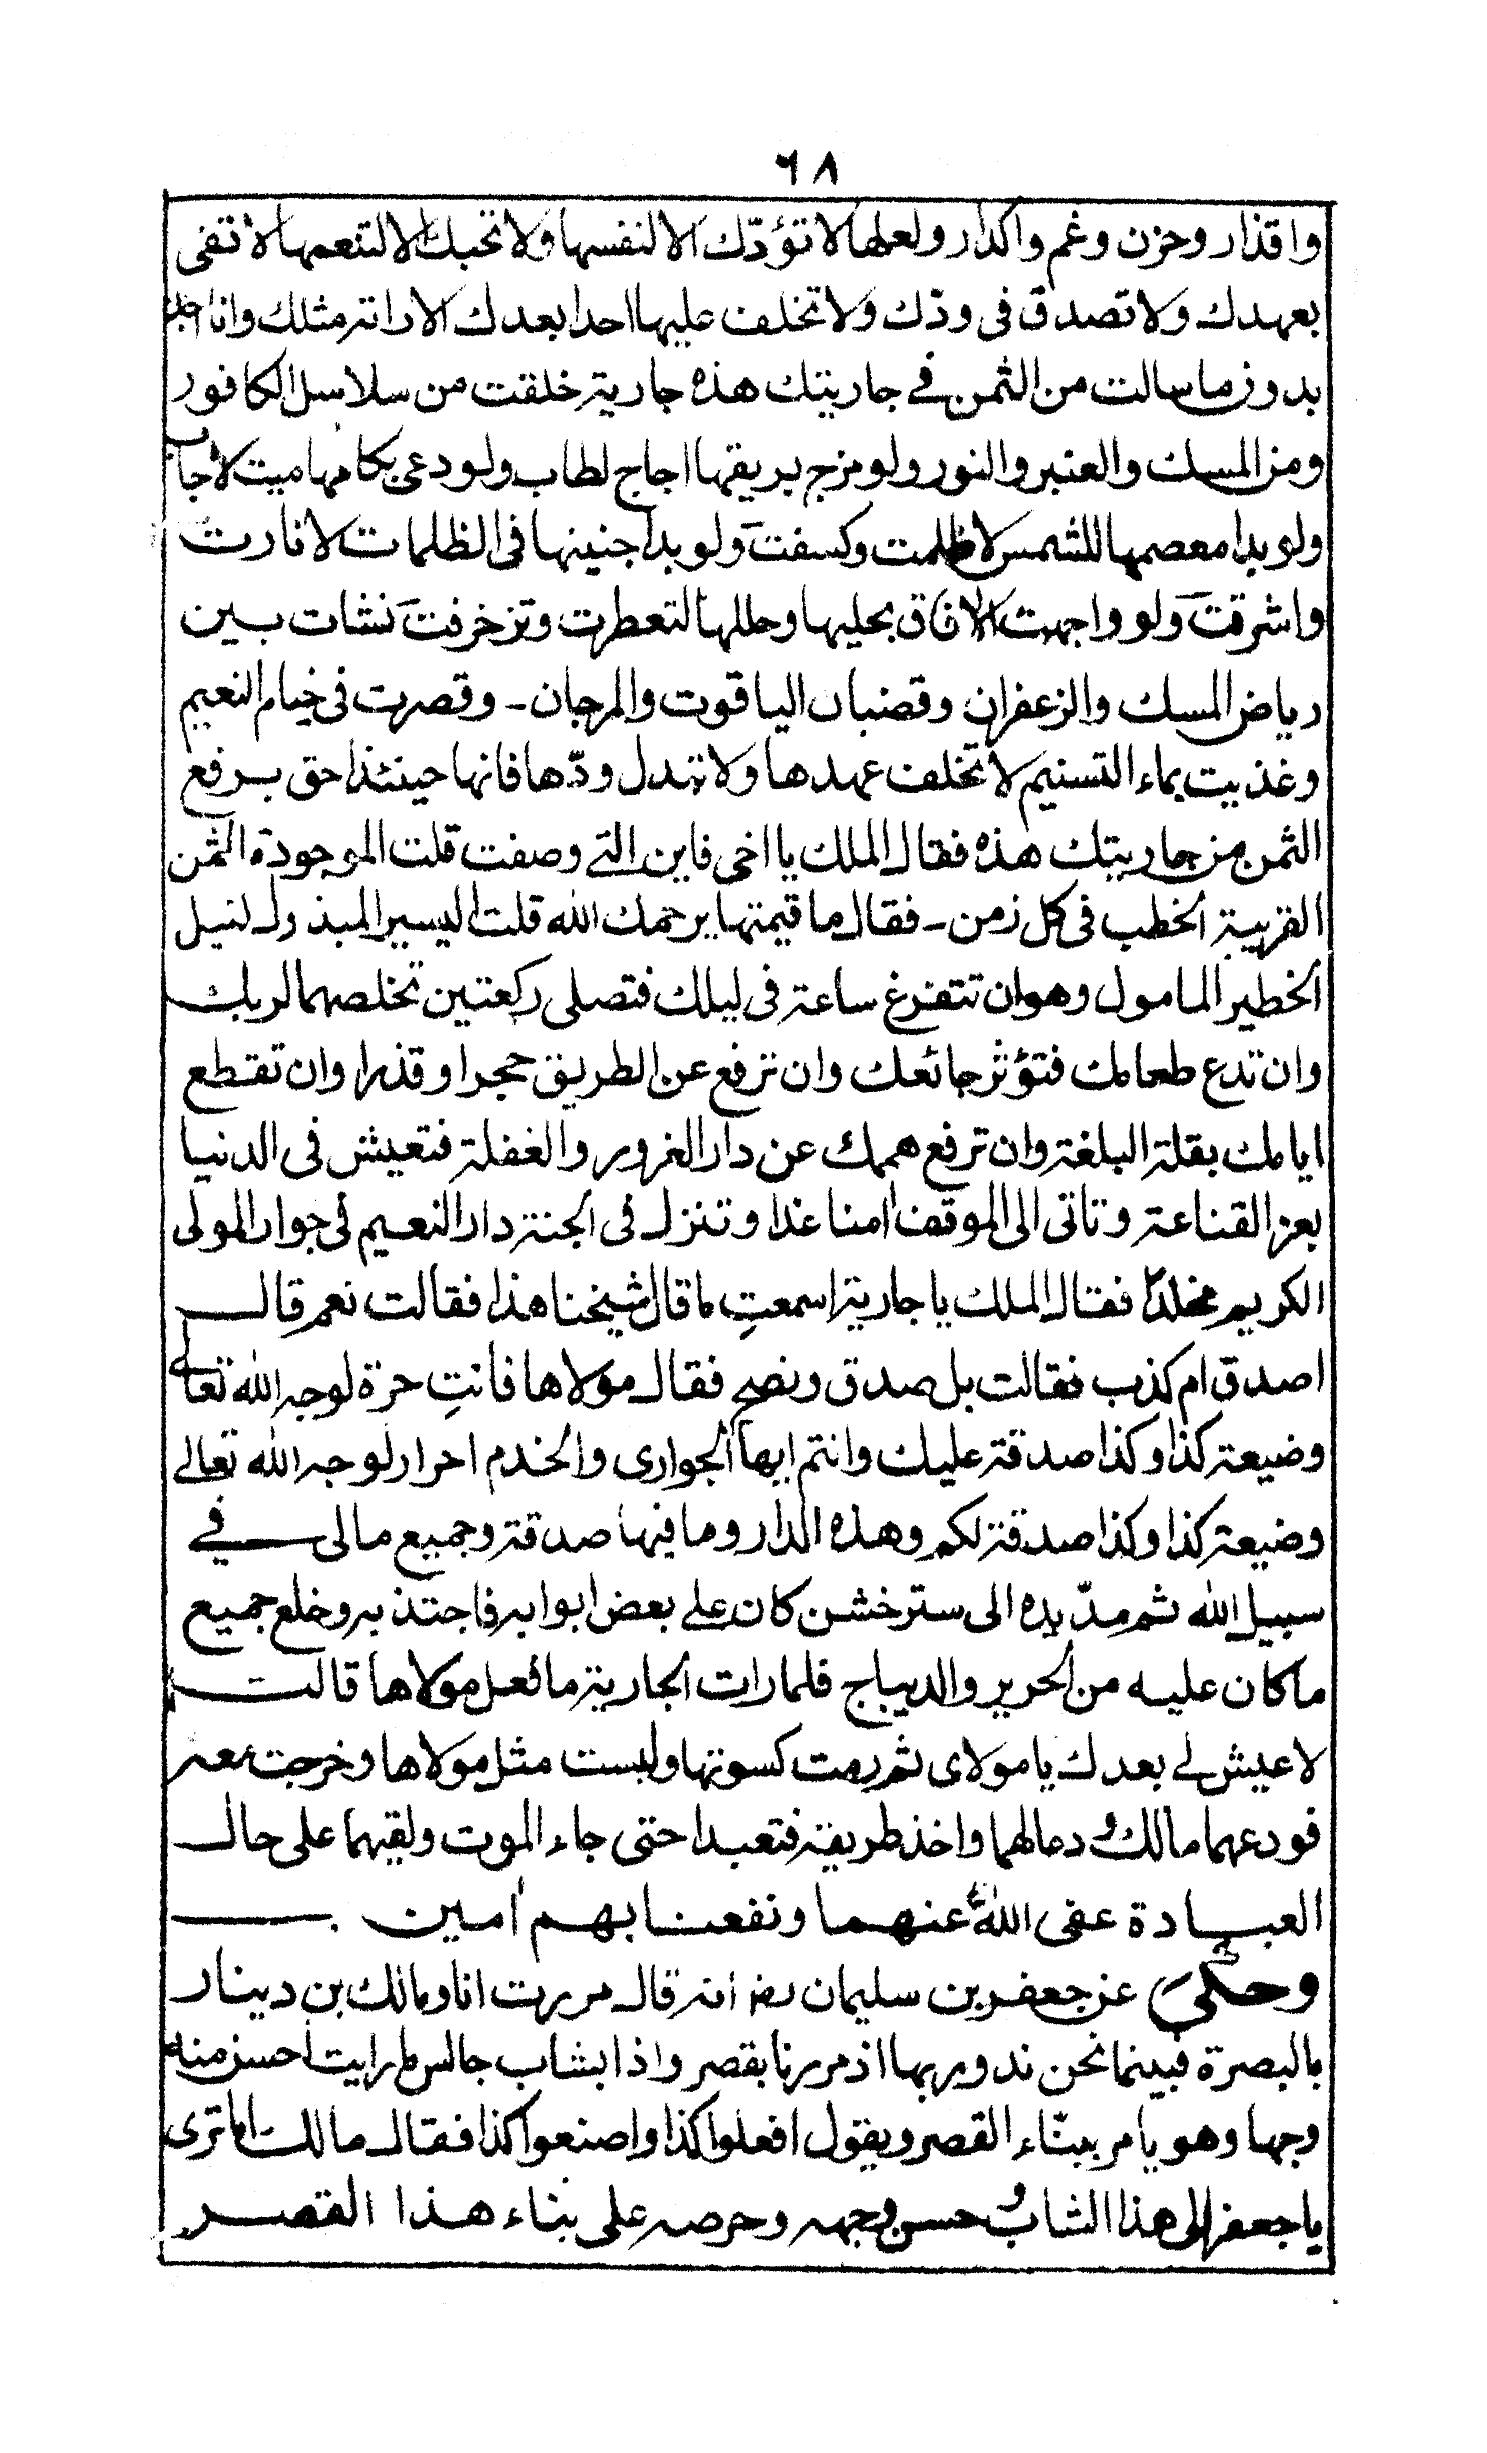 ٦٨
واقذار وحزن وغم واكدار ولعلها لا تؤدّك الا لنفسها ولا تحبك الا لتنعمها لا تفى
بعهدك ولا تصدق فى ودّك ولا تخلف عليها احدا بعدك الا راته مثلك وانا اخذ
بدون ما سالت من الثمن فے جاريتك هذه جارية خلقت من سلاسل الكافور
ومن المسك والعنبر والنور ولو مزج بريقها اجاج لطاب ولو دعى بكامها ميت لاجاب
ولو بدا معصمها للشمس لاظلمت وكسفت ولو بدا جنينها فى الظلمات لانارت
واشرقت ولو واجهت الافاق بحليها وحللها لتعطرت وتزخرفت نشات بين
رياض المسك والزعفران وقضبان الياقوت والمرجان ـ وقصرت فى خيام النعيم
وغذيت بماء التسنيم لا تخلف عهدها ولا تبدل ودّها فانها حينئذا حق برفع
الثمن من جاريتك هذه فقال الملك يا اخى فاين التے وصفت قلت الموجودة الثمن
القريبة الخطب فى كل زمن ـ فقال ما قيمتها يرحمك الله قلت اليسير المبذول لنيل
الخطير المامول وهو ان تتفرغ ساعة فى ليلك فتصلى ركعتين تخلصهما لربك
وان تدع طعامك فتؤثر جائعك وان ترفع عن الطريق حجرا وقذرا وان تقطع
ايامك بقلة البلغة وان ترفع همك عن دار الغرور والغفلة فتعيش فى الدنيا
بعز القناعة وتاتى الى الموقف امنا غدا وتنزل فى الجنة دار النعيم فى جوار المولى
الكريم مخلدًا فقال الملك يا جارية اسمعتِ ما قال شيخنا هذا فقالت نعم قال
اصدق ام كذب فقالت بل صدق ونصح فقال مولاها فانتِ حرة لوجه الله تعالى
وضيعة كذا وكذا صدقة عليك وانتم ايها الجوارى والخدم احرار لوجه الله تعالے
وضيعة كذا وكذا صدقة لكم وهذه الدار وما فيها صدقة وجميع مالى فے
سبيل الله ثم مدّ يده الى ستر خشن كان علے بعض ابوابه فاجتذبه وخلع جميع
ما كان عليه من الحرير والديباج فلما رات الجارية ما فعل مولاها قالت
لا عيش لے بعدك يا مولاى ثم رمت كسوتها ولبست مثل مولاها وخرجت معه
فودعهما مالك ودعا لهما واخذ طريقة فتعبدا حتى جاء الموت ولقيهما على حال
العبادة عفى الله عنهما ونفعنا بهم امين
وحكى عن جعفر بن سليمان رضـ انه قال مررت انا ومالك بن دينار
بالبصرة فبينما نحن ندور بها اذ مررنا بقصر واذا بشاب جالس ما رايت احسن منه
وجها وهو يامر ببنّاء القصر ويقول افعلوا كذا واصنعوا كذا فقال مالك اما ترى
يا جعفر الى هذا الشاب وحسن وجهه وحرصه على بناء هذا القصر